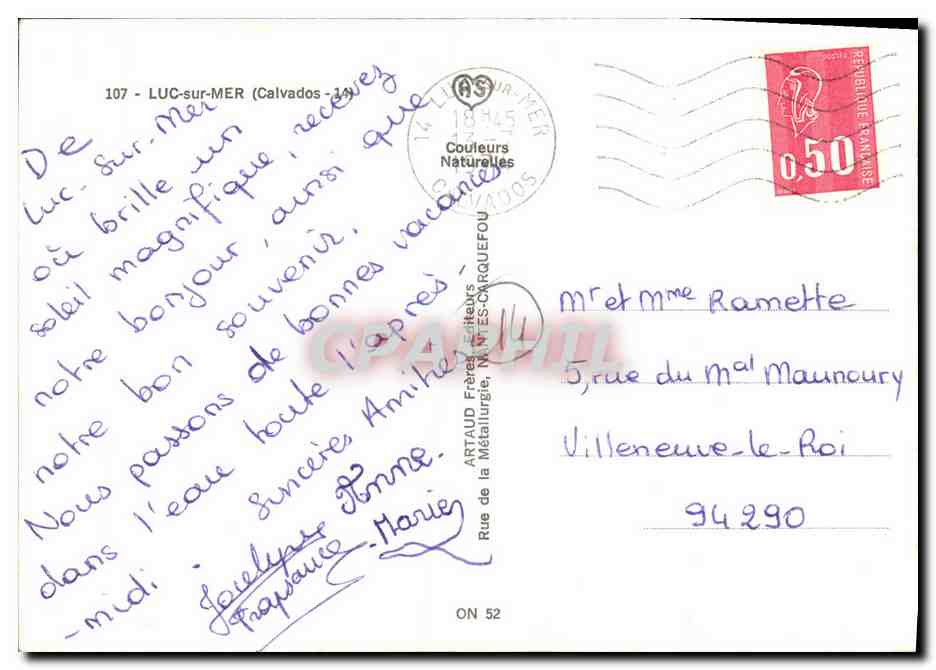 107 - LUC-sur-MER (Calvados - 14)
De
Luc-sur-Mer
où brille un
soleil magnifique, recevez
notre bonjour, ainsi que
notre bon souvenir.
Nous passons de bonnes vacances
dans l'eau toute l'après-
-midi. Sincères Amitiés
Jocelyne Anne-
-Marie
AS
Couleurs
Naturelles
14 LUC-SUR-MER
18H45
CALVADOS
RÉPUBLIQUE FRANÇAISE
0,50
ARTAUD Frères, Editeurs
Rue de la Métallurgie, NANTES-CARQUEFOU
14
CPARAMA
Mr et Mme Ramette
5, rue du Mal Maunoury
Villeneuve-le-Roi
94290
ON 52